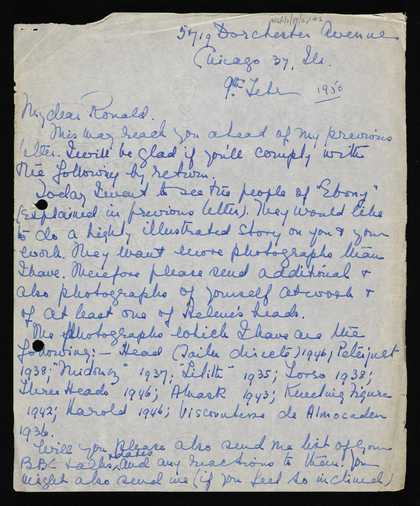 5719 Dorchester Avenue
Chicago 37, Ills.
9th Febr 1950
My dear Ronald.
This may reach you ahead of my previous
letter. I will be glad if you'll comply with
the following by return.
Today I went to see the people of "Ebony"
(explained in previous letter). They would like
to do a highly illustrated story on you & your
work. They want more photographs than
I have. Therefore please send additional &
also photographs of yourself at work &
of at least one of Helene's heads.
The photographs which I have are the
following:- Head ( ) 1946;
1938; "Midonz" 1937; "Lilith" 1935; Torso 1938;
Three Heads 1946; Mask 1943; Kneeling Figure
1942; Harold 1946; Viscountess de Almocaden
1936.
Will you please also send me list of your
B.B.C talks, dates and any reactions to them. You
might also send me (if you feel so inclined)